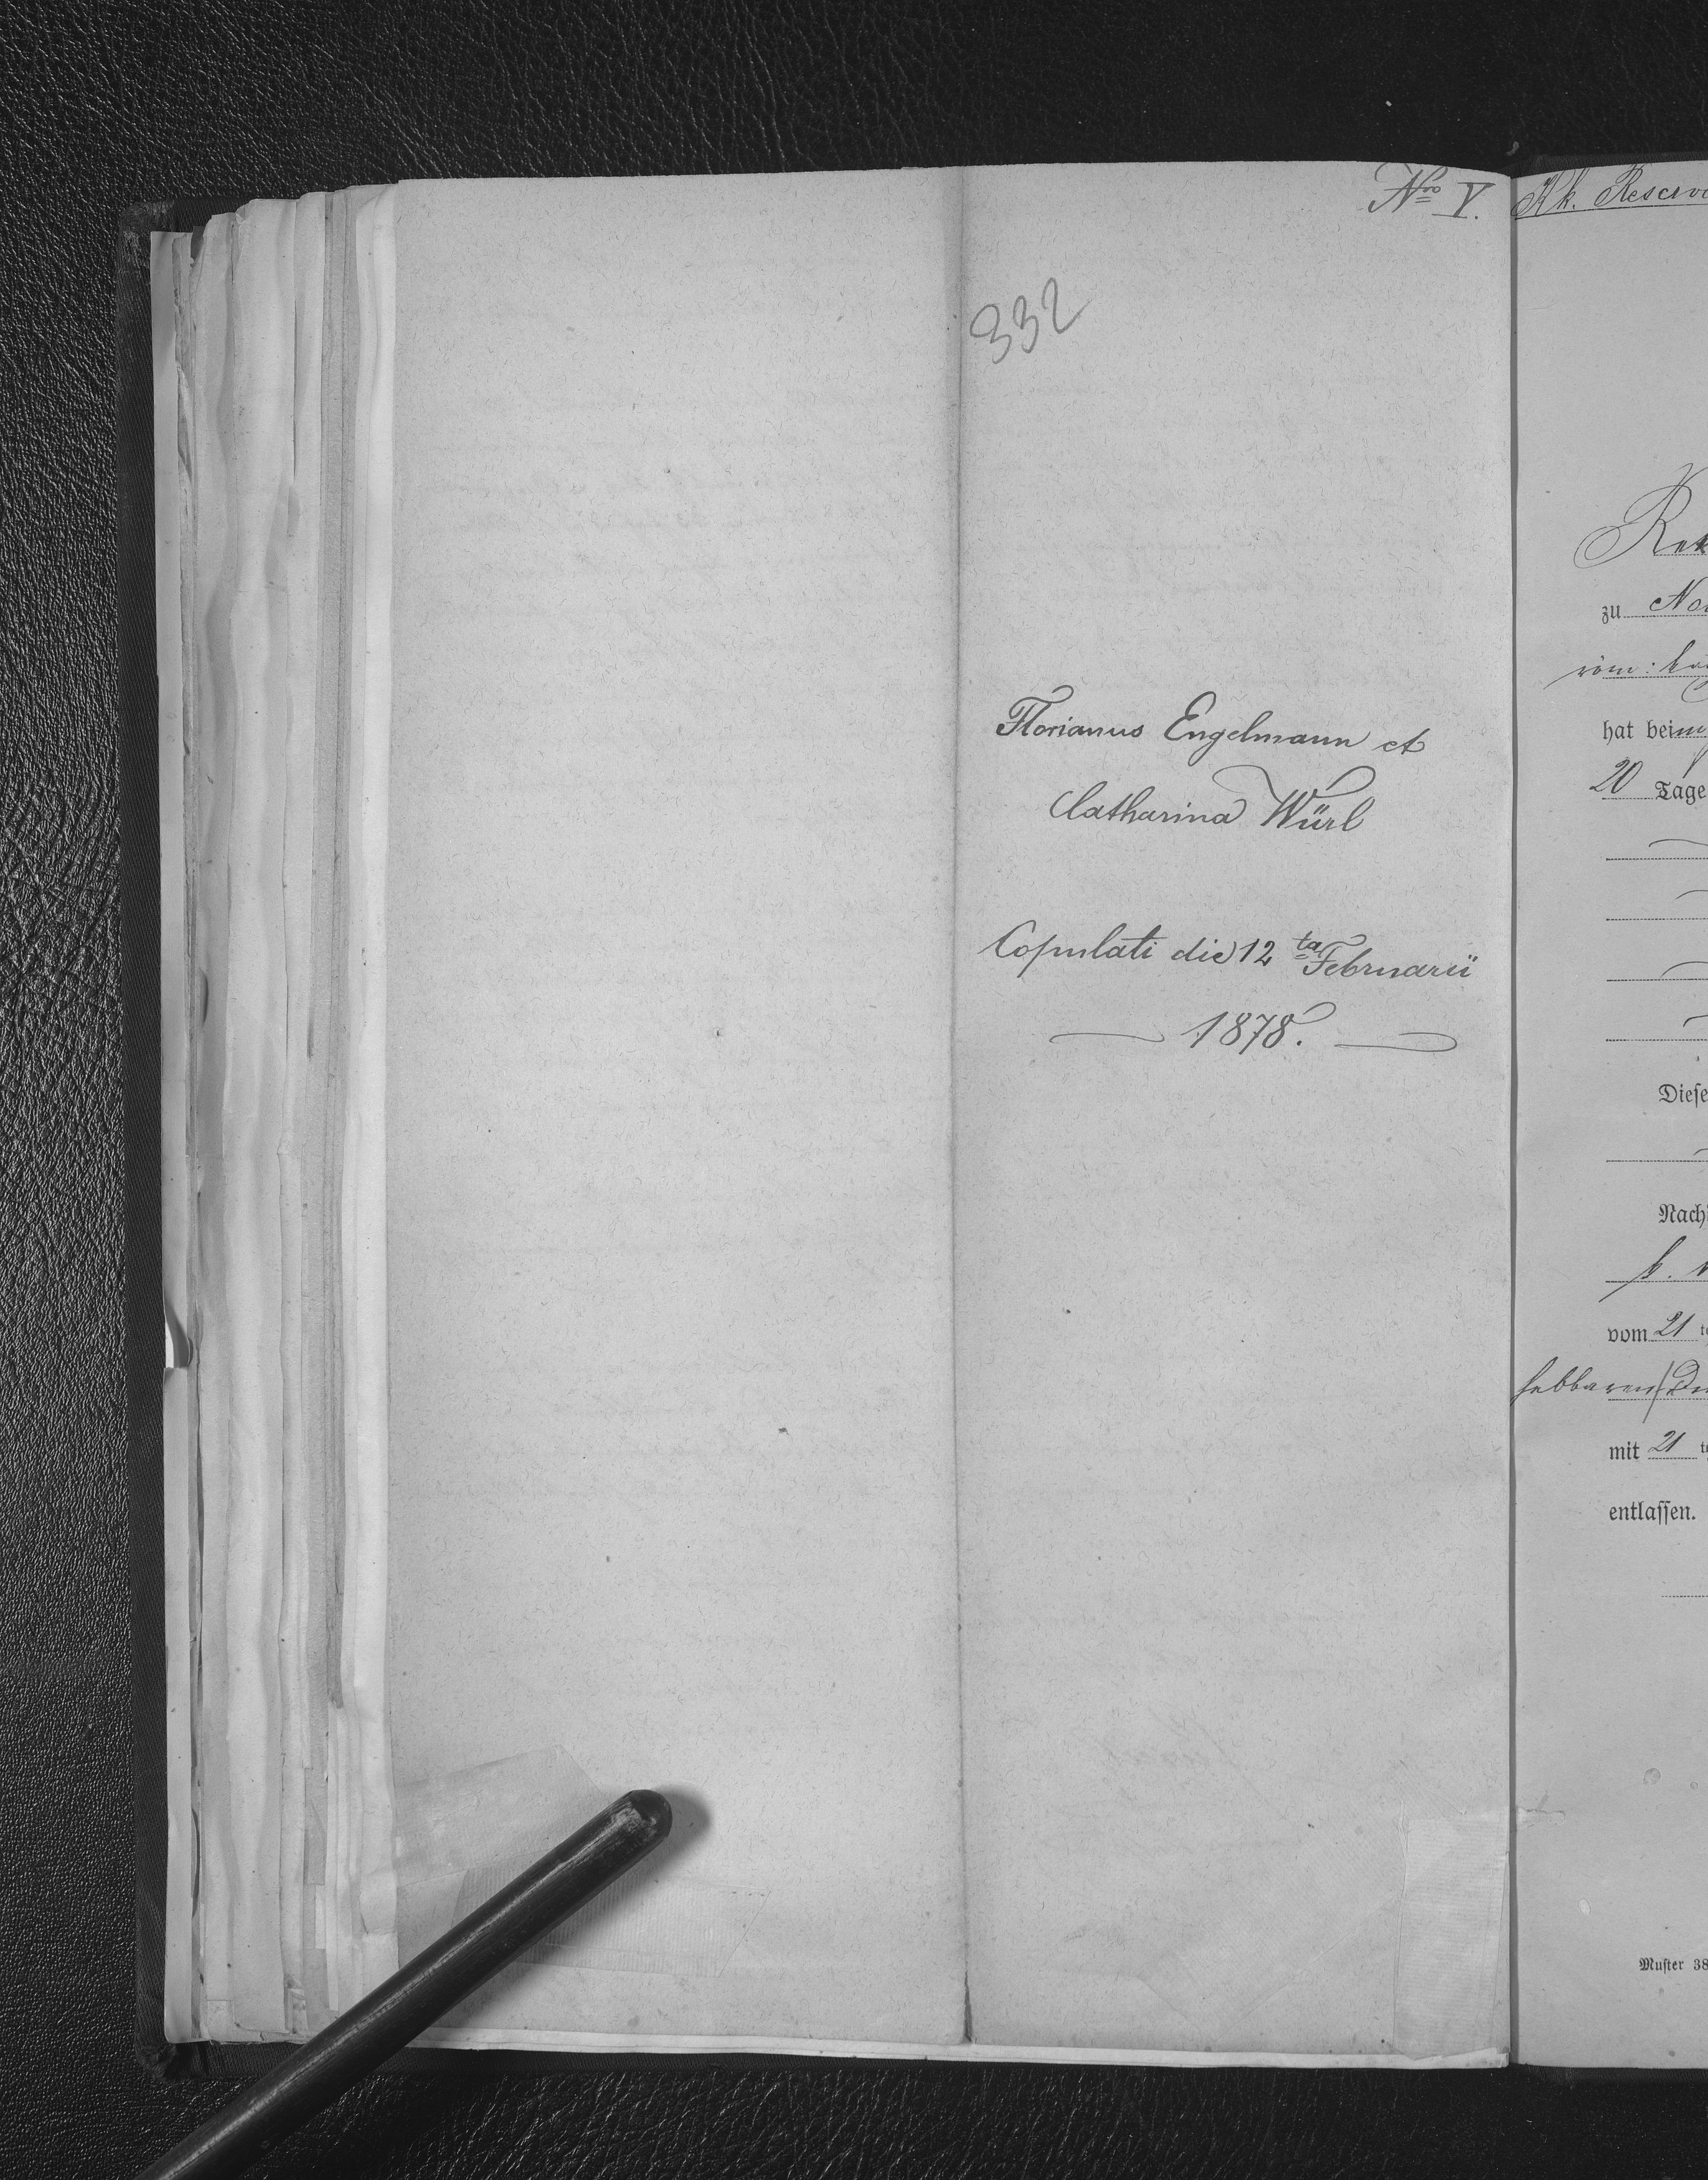 Nro V.
332
Florianus Engelmann et
Catharina Würl
Copulati die 12 ta Februarii
1878.
Kk. Reserve
zu
röm:
hat beim
20 Tage
Diese
Nach
vom 21
mit 21
entlassen.
Muster 38